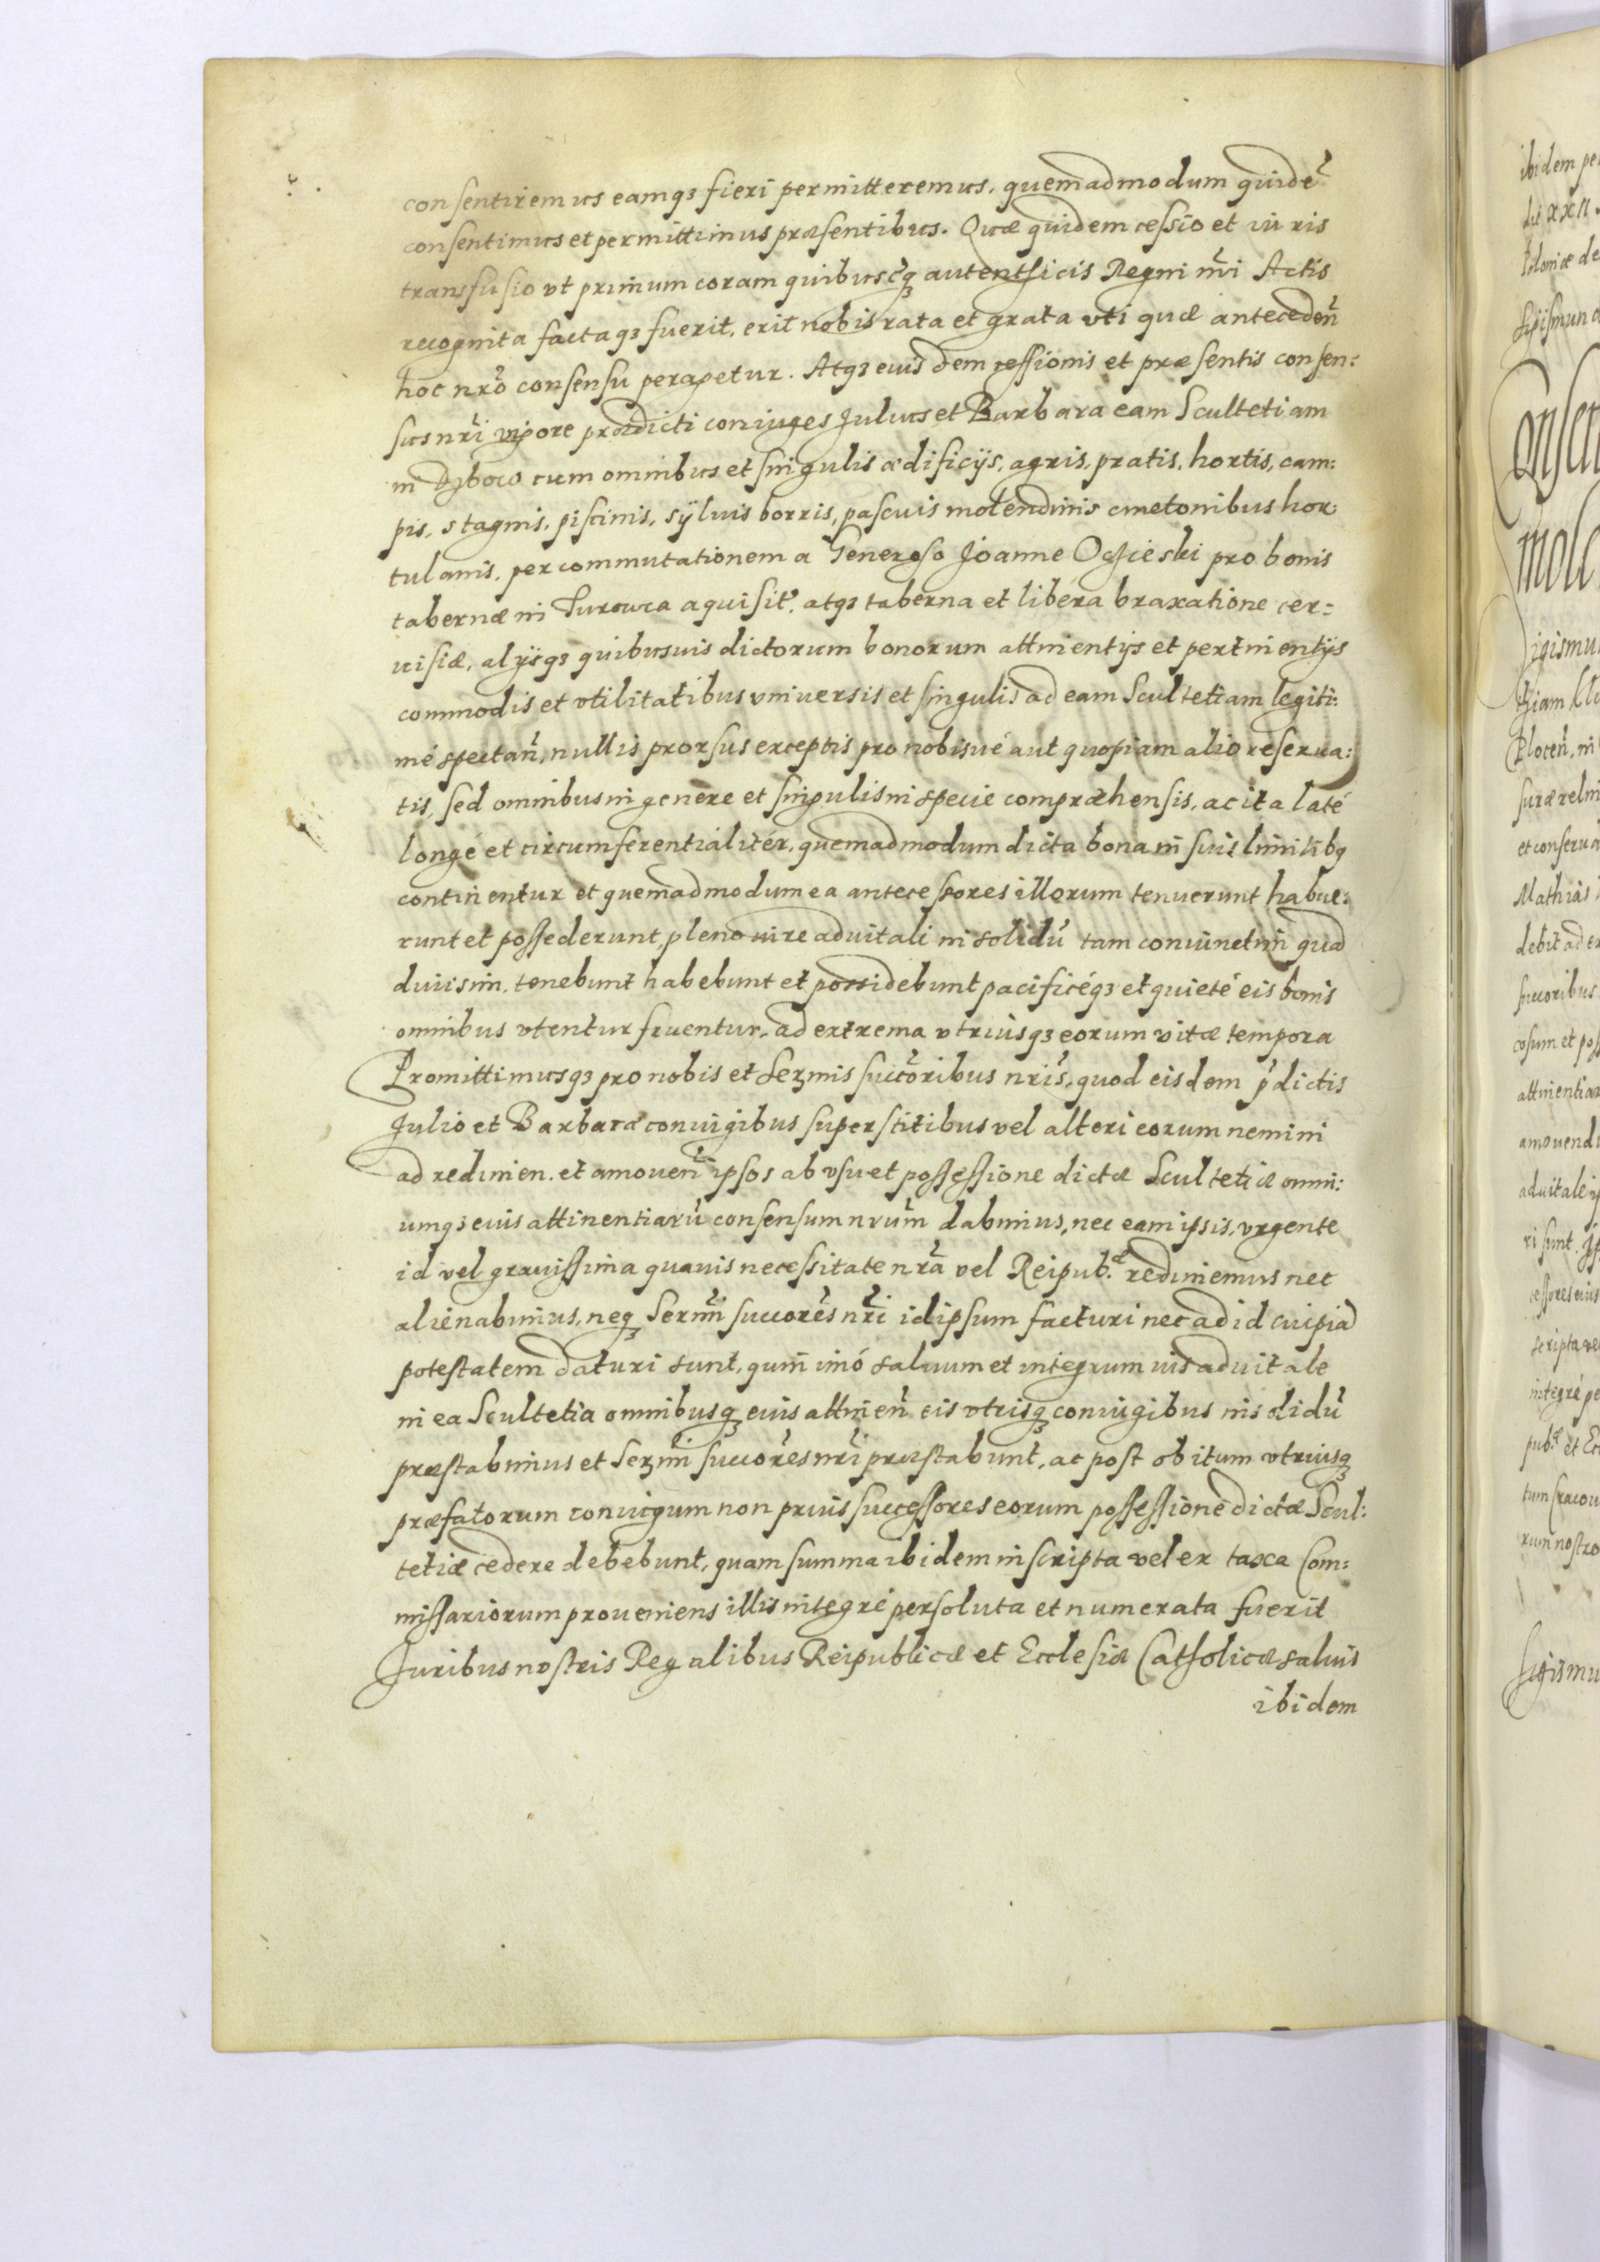 consentiremus eamqȝ fieri permitteremus, quemadmodum quidē
consentimus et permittimus præsentibus. Quæ quidem cessio et iuris
transfusio vt primum coram quibuscq̃ȝ autenthicis Regni nr̃i Actis
recognita factaqȝ fuerit, erit nobis rata et grata vti quæ anteceden̄
hoc nr̃o consensu peragetur. Atqȝ eiusdem cessionis et præsentis consen:
sus nr̃i vigore prædicti coniuges Julius et Barbara eam Scultetiam
in cum omnibus et singulis ædificijs, agris, pratis, hortis, cam:
pis, stagnis, piscinis, syluis borris, pascuis molendinis cmetonibus hor:
tulanis, per commutationem a Generoso Joanne pro bonis
tabernæ in aquisit̃, atqȝ taberna et libera braxatione cer:
uisiæ, alijsqȝ quibusuis dictorum bonorum attinentijs et pertinentijs
commodis et vtilitatibus vniuersis et singulis ad eam Scultetiam legiti:
mé spectan̄, nullis prorsus exceptis pro nobisué aut quopiam alio reserua:
tis, sed omnibus in genere et singulis in specie compræhensis, ac ita laté
longé et circumferentialitér, quemadmodum dicta bona in suis limitibq
continentur et quemadmodum ea antecessores illorum tenuerunt habue:
runt et possederunt, pleno iure aduitali in solidū tam coniunctim quā
diuisim, tenebunt habebunt et possidebunt pacificéqȝ et quieté eis bonis
omnibus vtentur fruentur, ad extrema vtriusqȝ eorum vitæ tempora
Promittimusqȝ pro nobis et Serm̃is succ̃oribus nr̃is, quod eisdem p̃dictis
Julio et Barbaræ coniugibus superstitibus vel alteri eorum nemini
ad redimen. et amouen̄ ipsos ab vsu et possessione dictæ Scultetiæ omni:
umqȝ eius attinentiarū consensum nr̃um dabimus, nec eam ipsis, vrgente
id vel grauissima quauis necessitate nr̃a vel Reipub.æ redimemus nec
alienabimus, neqȝ Serm̃i succ̃ores nr̃i id ipsum facturi nec ad id cuipiā
potestatem daturi sunt, quin imó saluum et integrum ius aduitale
in ea Scultetia omnibusqȝ eius attinen̄ eis vtrisqȝ coniugibus in solidū
præstabimus et Serm̃i succ̃ores nr̃i præstabunt, ac post obitum vtriusqȝ
præfatorum coniugum non prius successores eorum possessione dictæ Scul:
tetiæ cedere debebunt, quam summa ibidem inscripta vel ex taxa Com:
missariorum proueniens illis integré persoluta et numerata fuerit
Juribus nostris Regalibus Reipublicæ et Ecclesiæ Catholicæ saluis
ibidem